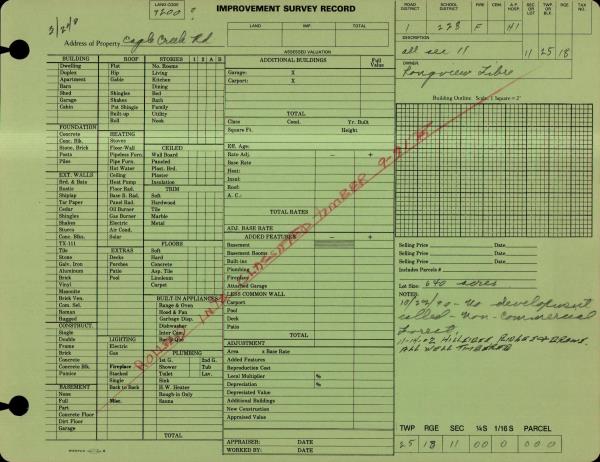 LAND CODE
9200 ?
IMPROVEMENT SURVEY RECORD
Address of Property Eagle Creek Rd
LAND IMP. TOTAL
ASSESSED VALUATION
ROAD DISTRICT SCHOOL DISTRICT FIRE A.P. HOSP. TWP or BLK RGE
1 228 F H1
DESCRIPTION
all sec 11 11 25 18
OWNER
Longview Fibre
BUILDING ROOF STORIES 1 2 A B
Dwelling Flat No. Rooms
Duplex Hip Living
Apartment Gable Kitchen
Barn Dining
Shed Shingles Bed
Garage Shakes Bath
Cabin Pat Shingle Family
Built-up Utility
Roll Nook
TOTAL
FOUNDATION
Concrete HEATING
Conc. Blk. Stoves
Stone, Brick Floor-Wall CEILED
Posts Pipeless Furn. Wall Board
Piles Pipe Furn. Paneled
Hot Water Plast. Brd.
EXT. WALLS Ceiling Plaster
Brd. & Bats Heat Pump Insulation
Rustic Floor Rad. TRIM
Shiplap Base B. Rad. Soft
Tar Paper Panel Rad. Hardwood
Cedar Oil Burner Tile
Shingles Gas Burner Marble
Shakes Electric Metal
Stucco Air Cond.
Conc. Blks. Solar
TX-111 FLOORS
Tile EXTRAS Soft
Stone Decks Hard
Galv. Iron Porches Concrete
Aluminum Patio Asp. Tile
Brick Pool Linoleum
Vinyl Carpet
Masonite
Brick Ven. BUILT-IN APPLIANCES
Com. Sel. Range & Oven
Roman Hood & Fan
Rugged Garbage Disp.
CONSTRUCT. Dishwasher
Single Inter Com.
Double LIGHTING
Frame Electric PLUMBING
Brick Gas
Concrete 1st G. 2nd G.
Concrete Blk. Fireplace Shower Tub
Pumice Stacked Toilet Lav.
Single Sink
BASEMENT Back to Back H.W. Heater
None Rough-in Only
Full Misc. Sauna
Part
Concrete Floor
Dirt Floor
Garage TOTAL
ADDITIONAL BUILDINGS Full Value
Garage: X
Carport: X
TOTAL
Class Cond. Yr. Built
Square Ft. Height
Eff. Age:
Rate Adj. − +
Base Rate
Heat:
Insul:
Roof:
A. C.:
TOTAL RATES
ADJ. BASE RATE
ADDED FEATURES − +
Basement
Basement Rooms
Built-ins
Plumbing
Fireplace
Attached Garage
LESS COMMON WALL
Carport
Pool
Deck
Patio
TOTAL
ADJUSTMENT
Area x Base Rate
Added Features
Reproduction Cost
Local Multiplier %
Depreciation %
Depreciated Value
Additional Buildings
New Construction
Appraised Value
APPRAISER: DATE
WORKED BY: DATE
Building Outline Scale: 1 Square = 2'
Selling Price Date
Selling Price Date
Selling Price Date
Includes Parcels #
Lot Size: 640 acres
NOTES:
10/22/90 - No development
called - Non-commercial
Forest
ALL WELL TIMBERED
TWP RGE SEC ¼S 1/16S PARCEL
25 18 11 00 0 000